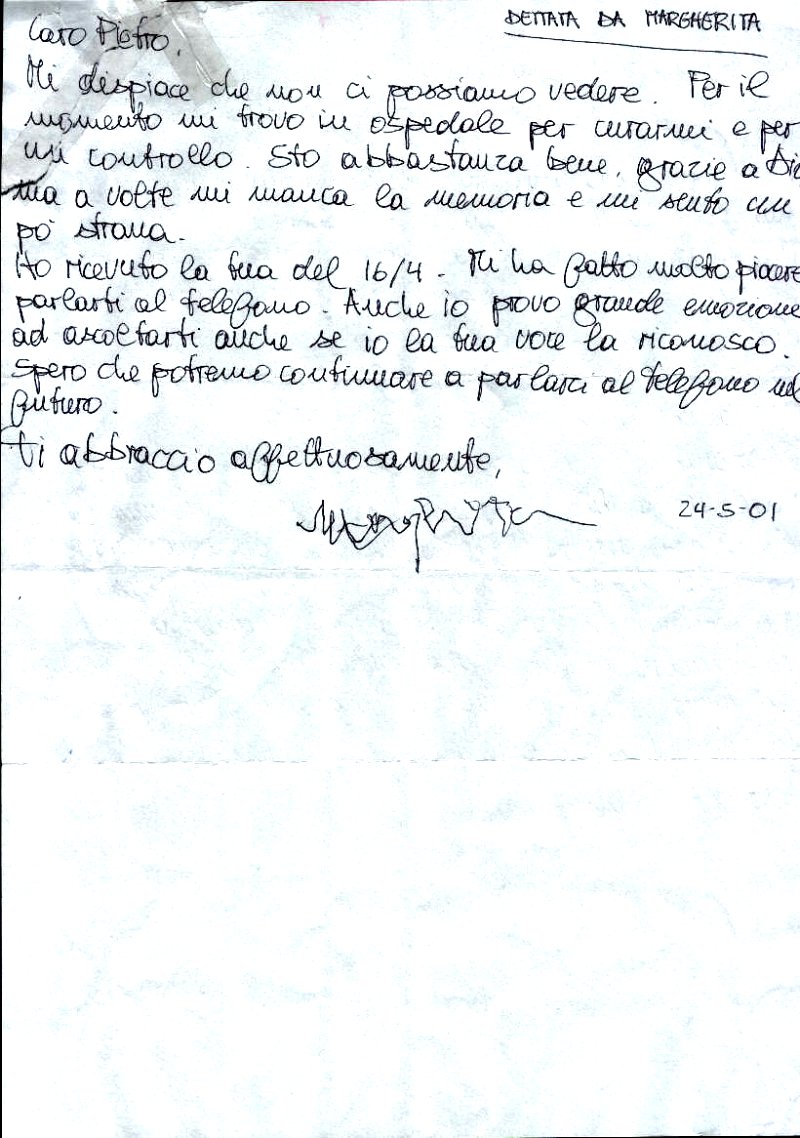 DETTATA DA MARGHERITA
Caro Pietro,
Mi dispiace che non ci possiamo vedere. Per il
momento mi trovo in ospedale per curarmi e per
un controllo. Sto abbastanza bene, grazie a Dio
ma a volte mi manca la memoria e mi sento un
pò strana.
Ho ricevuto la tua del 16/4. Mi ha fatto molto piacere
parlarti al telefono. Anche io provo grande emozione
ad ascoltarti anche se io la tua voce la riconosco.
Spero che potremo continuare a parlarci al telefono nel
futuro.
Ti abbraccio affettuosamente,
Margherita
24-5-01